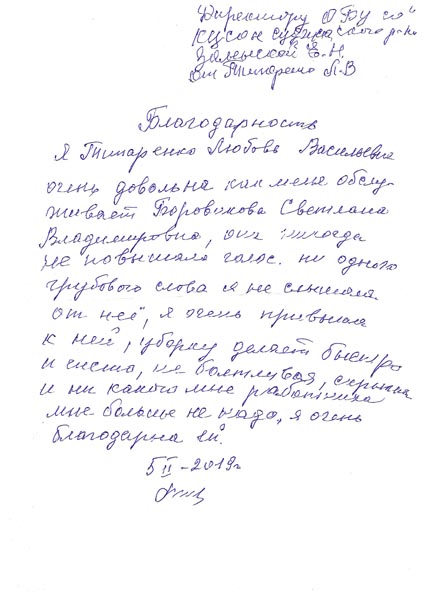 Директору ОГБУ СО
КЦСОН ского р-на
Заленской Е.Н.
от Титаренко Л.В
Благодарность
Я Титаренко Любовь Васильевна
очень довольна как меня обслу-
живает Боровикова Светлана
Владимировна, она никогда
не повышала голос. ни одного
грубового слова я не слышала
от неё, я очень привыкла
к ней, уборку делает быстро
и чисто, не болтливая, скрытна
и ни какого мне работника
мне больше не надо, я очень
благодарна ей.
5 II - 2019г